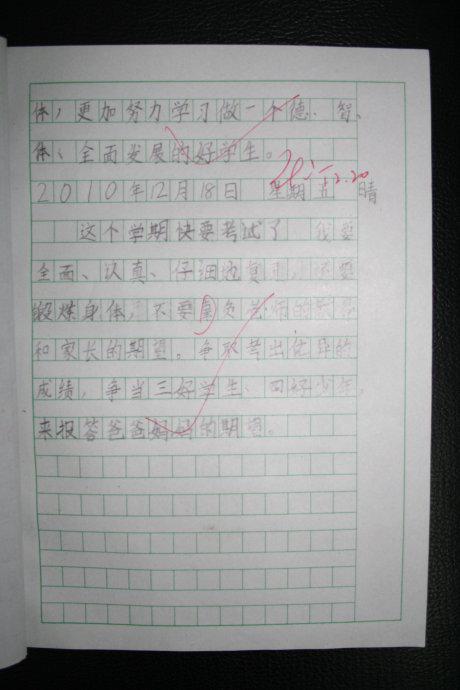 体，更加努力学习做一个德、智、
体、全面发展的好学生。
2010年12月18日 星期五 晴
这个学期快要考试了 我要
全面、认真、仔细地复习，还要
锻炼身体，不要辜负老师的教导
和家长的期望。争取考出优异的
成绩，争当三好学生、四好少年，
来报答爸爸妈妈的期望。